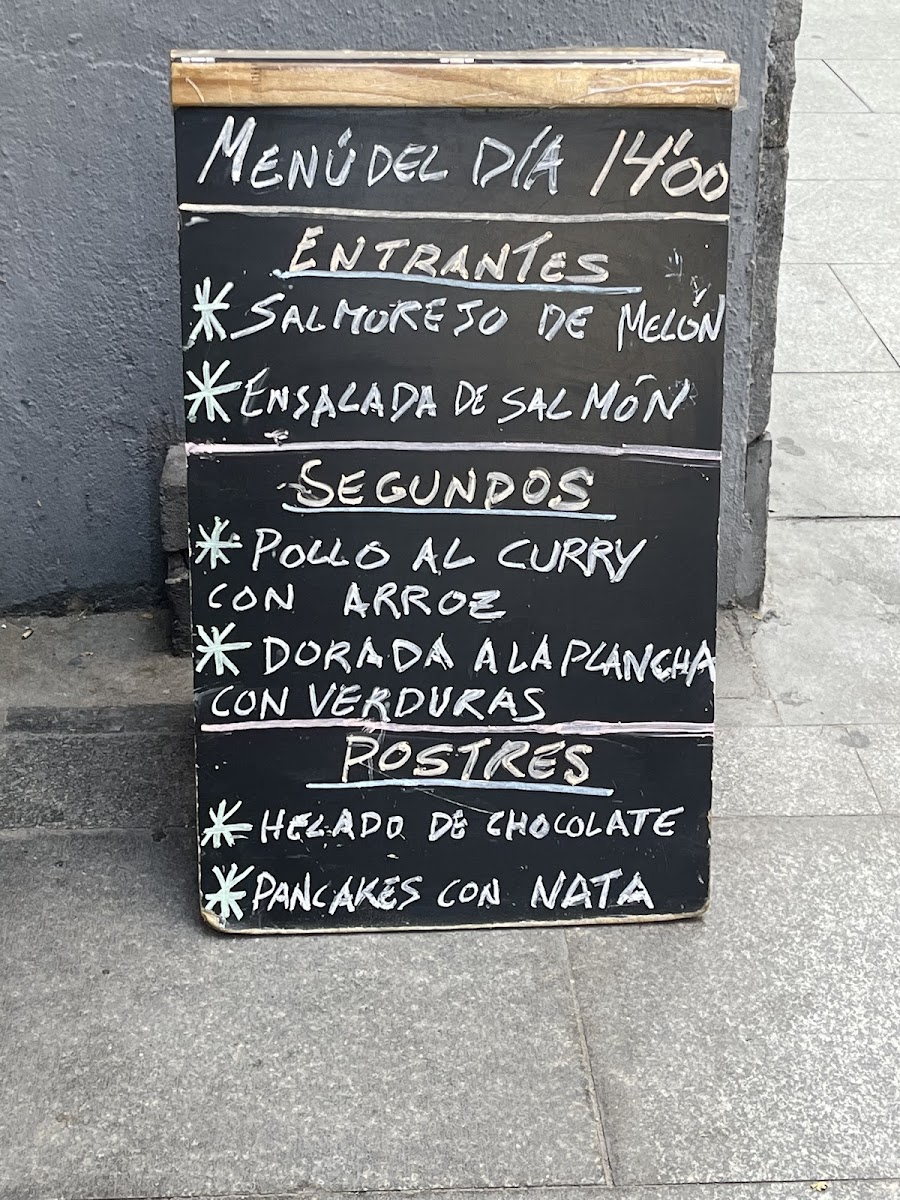 MENÚ DEL DÍA 14'00
ENTRANTES
* SALMOREJO DE MELÓN
* ENSALADA DE SALMÓN
SEGUNDOS
* POLLO AL CURRY
CON ARROZ
* DORADA A LA PLANCHA
CON VERDURAS
POSTRES
* HELADO DE CHOCOLATE
* PANCAKES CON NATA